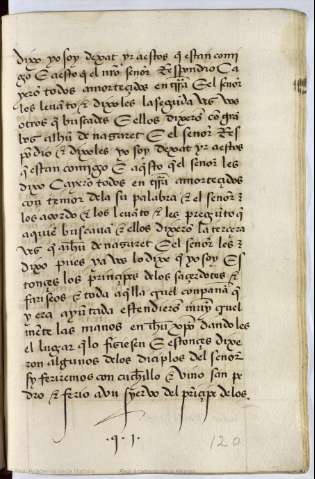 dixo yo soy dexat yr aestos q̃ están comi
go E aesto q̃ el nr̃o señor Respondio Ca
yerõ todos amorteçidos en trr̃a E el señor
los leuãto & dixoles la segũda ves vos
otros q̃ buscades E ellos dixerõ cõ grã
bos a ihũ de nazaret E el señor Res
põdio & dixoles yo soy dexat yr aestos
q̃ estan comigo E aq̃sto q̃ el señor les
dixo Cayerõ todos en trr̃a amorteçidos
con temor dela su palabra & el señor
los acordo & los leuãto & les pregũto q̃
aquiẽ buscauã & ellos dixerõ la terçera
ves q̃ a ihũ de nazaret E el señor les
dixo pues ya vos lo dixe q̃ yo soy Es
tonçes los prĩnçipes delos saçerdotes &
fariseos & toda aq̃lla cruel conpaña q̃
y era ayũtada estendierõ muy cruel
mẽte las manos en ihũ xp̃o dandoles
el lugar q̃ lo fisiesen E estonçes dixe
ron algunos delos diçiplos del señor
sy feriremos con cuchillo & vino san pe
dro & ferio a vn syeruo del prĩçipe delos
.q.1.
120